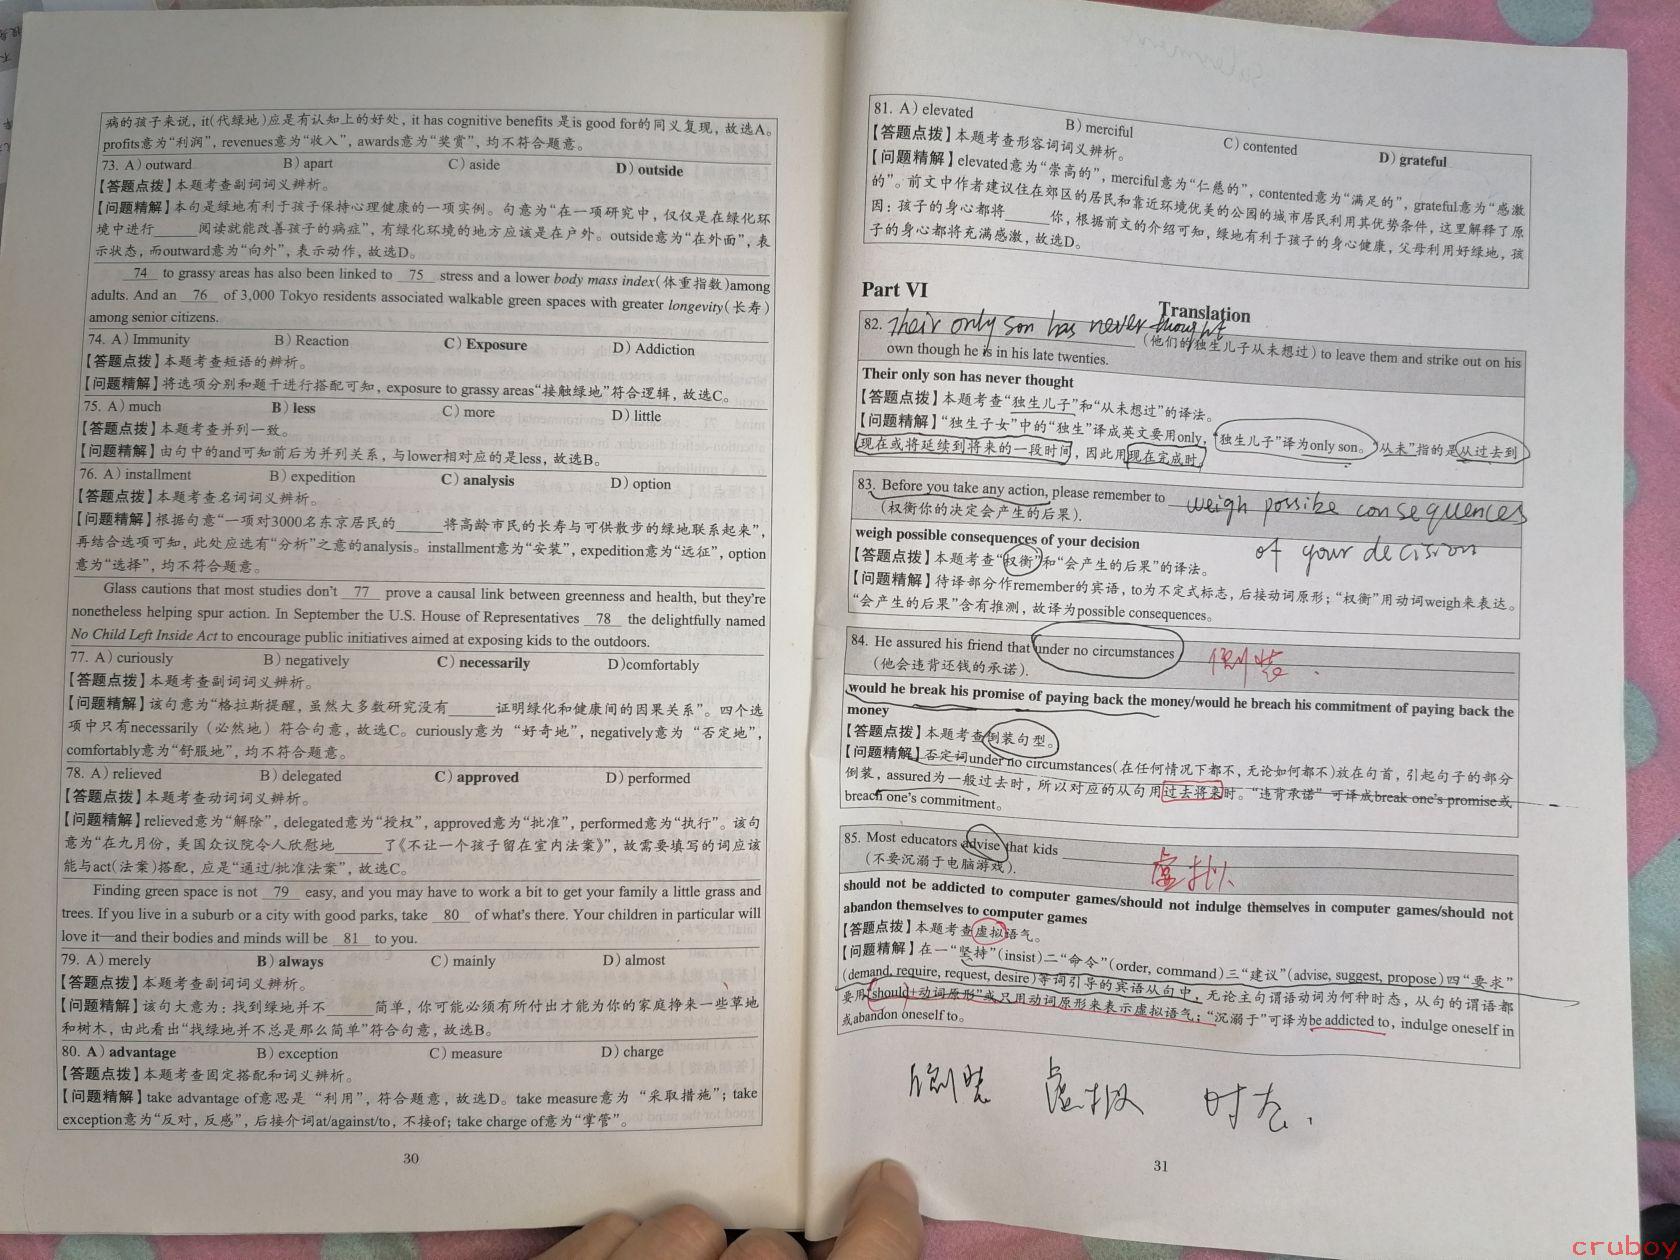 病的孩子来说，it(代绿地)应是有认知上的好处，it has cognitive benefits 是is good for的同义复现，故选A。
profits意为“利润”，revenues意为“收入”，awards意为“奖赏”，均不符合题意。
73. A) outward B) apart C) aside D) outside
【答题点拨】本题考查副词词义辨析。
【问题精解】本句是绿地有利于孩子保持心理健康的一项实例。句意为“在一项研究中，仅仅是在绿化环
境中进行______阅读就能改善孩子的病症”，有绿化环境的地方应该是在户外。outside意为“在外面”，表
示状态，而outward意为“向外”，表示动作，故选D。
74 to grassy areas has also been linked to 75 stress and a lower body mass index(体重指数)among
adults. And an 76 of 3,000 Tokyo residents associated walkable green spaces with greater longevity(长寿)
among senior citizens.
74. A) Immunity B) Reaction C) Exposure D) Addiction
【答题点拨】本题考查短语的辨析。
【问题精解】将选项分别和题干进行搭配可知，exposure to grassy areas“接触绿地”符合逻辑，故选C。
75. A) much B) less C) more D) little
【答题点拨】本题考查并列一致。
【问题精解】由句中的and可知前后为并列关系，与lower相对应的是less，故选B。
76. A) installment B) expedition C) analysis D) option
【答题点拨】本题考查名词词义辨析。
【问题精解】根据句意“一项对3000名东京居民的______将高龄市民的长寿与可供散步的绿地联系起来”，
再结合选项可知，此处应选有“分析”之意的analysis。installment意为“安装”，expedition意为“远征”，option
意为“选择”，均不符合题意。
Glass cautions that most studies don't 77 prove a causal link between greenness and health, but they're
nonetheless helping spur action. In September the U.S. House of Representatives 78 the delightfully named
No Child Left Inside Act to encourage public initiatives aimed at exposing kids to the outdoors.
77. A) curiously B) negatively C) necessarily D)comfortably
【答题点拨】本题考查副词词义辨析。
【问题精解】该句意为“格拉斯提醒，虽然大多数研究没有______证明绿化和健康间的因果关系”。四个选
项中只有necessarily（必然地）符合句意，故选C。curiously意为“好奇地”，negatively意为“否定地”，
comfortably意为“舒服地”，均不符合题意。
78. A) relieved B) delegated C) approved D) performed
【答题点拨】本题考查动词词义辨析。
【问题精解】relieved意为“解除”，delegated意为“授权”，approved意为“批准”，performed意为“执行”。该句
意为“在九月份，美国众议院令人欣慰地______了《不让一个孩子留在室内法案》”，故需要填写的词应该
能与act(法案)搭配，应是“通过/批准法案”，故选C。
Finding green space is not 79 easy, and you may have to work a bit to get your family a little grass and
trees. If you live in a suburb or a city with good parks, take 80 of what's there. Your children in particular will
love it—and their bodies and minds will be 81 to you.
79. A) merely B) always C) mainly D) almost
【答题点拨】本题考查副词词义辨析。
【问题精解】该句大意为：找到绿地并不______简单，你可能必须有所付出才能为你的家庭挣来一些草地
和树木，由此看出“找绿地并不总是那么简单”符合句意，故选B。
80. A) advantage B) exception C) measure D) charge
【答题点拨】本题考查固定搭配和词义辨析。
【问题精解】take advantage of意思是“利用”，符合题意，故选D。take measure意为“采取措施”；take
exception意为“反对，反感”，后接介词at/against/to，不接of；take charge of意为“掌管”。
30
81. A) elevated B) merciful C) contented D) grateful
【答题点拨】本题考查形容词词义辨析。
【问题精解】elevated意为“崇高的”，merciful意为“仁慈的”，contented意为“满足的”，grateful意为“感激
的”。前文中作者建议住在郊区的居民和靠近环境优美的公园的城市居民利用其优势条件，这里解释了原
因：孩子的身心都将______你，根据前文的介绍可知，绿地有利于孩子的身心健康，父母利用好绿地，孩
子的身心都将充满感激，故选D。
Part VI Translation
82. Their only son has never thought (他们的独生儿子从未想过) to leave them and strike out on his
own though he is in his late twenties.
Their only son has never thought
【答题点拨】本题考查“独生儿子”和“从未想过”的译法。
【问题精解】“独生子女”中的“独生”译成英文要用only，“独生儿子”译为only son。“从未”指的是从过去到
现在或将延续到将来的一段时间，因此用现在完成时。
83. Before you take any action, please remember to weigh possibe consequences
(权衡你的决定会产生的后果). of your decision
weigh possible consequences of your decision
【答题点拨】本题考查“权衡”和“会产生的后果”的译法。
【问题精解】待译部分作remember的宾语，to为不定式标志，后接动词原形；“权衡”用动词weigh来表达。
“会产生的后果”含有推测，故译为possible consequences。
84. He assured his friend that under no circumstances 倒装
(他会违背还钱的承诺).
would he break his promise of paying back the money/would he breach his commitment of paying back the
money
【答题点拨】本题考查倒装句型。
【问题精解】否定词under no circumstances(在任何情况下都不，无论如何都不)放在句首，引起句子的部分
倒装，assured为一般过去时，所以对应的从句用过去将来时。“违背承诺”可译成break one's promise或
breach one's commitment。
85. Most educators advise that kids 虚拟
(不要沉溺于电脑游戏).
should not be addicted to computer games/should not indulge themselves in computer games/should not
abandon themselves to computer games
【答题点拨】本题考查虚拟语气。
【问题精解】在一“坚持”(insist)二“命令”(order, command)三“建议”(advise, suggest, propose)四“要求”
(demand, require, request, desire)等词引导的宾语从句中，无论主句谓语动词为何种时态，从句的谓语都
要用“should+动词原形”或只用动词原形来表示虚拟语气；“沉溺于”可译为be addicted to, indulge oneself in
或abandon oneself to。
倒装 虚拟 时态.
31
cruboy